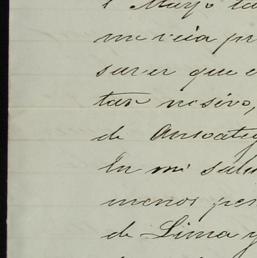 1 Mayo la
me veia pr
saver que e
tan nosivo,
de Ansoateg
En mi salu
menos pen
de Lima y